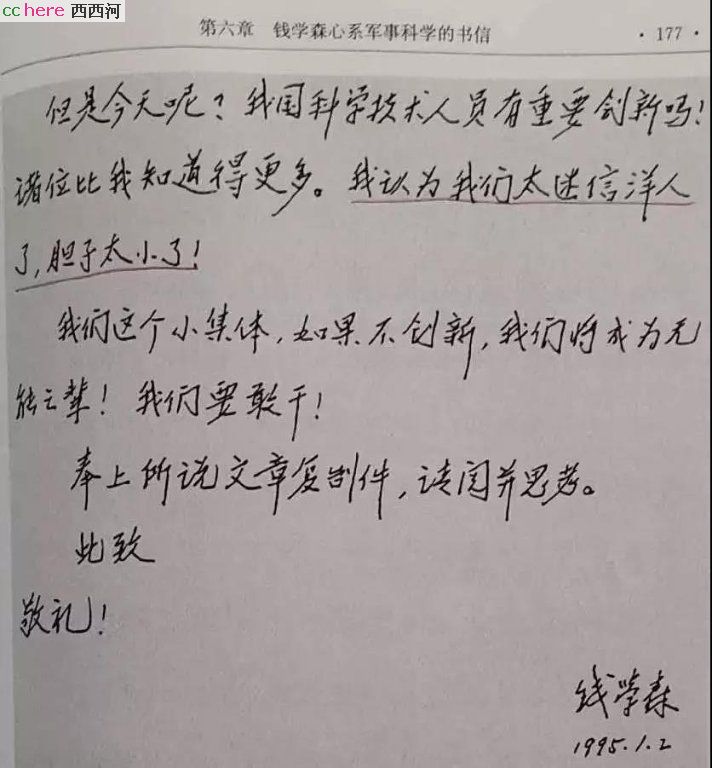 cchere 西西河
第六章 钱学森心系军事科学的书信 · 177 ·
但是今天呢？我国科学技术人员有重要创新吗！
诸位比我知道得更多。我认为我们太迷信洋人
了，胆子太小了！
我们这个小集体，如果不创新，我们将成为无
能之辈！我们要敢干！
奉上所说文章复制件，请阅并思考。
此致
敬礼！
钱学森
1995.1.2